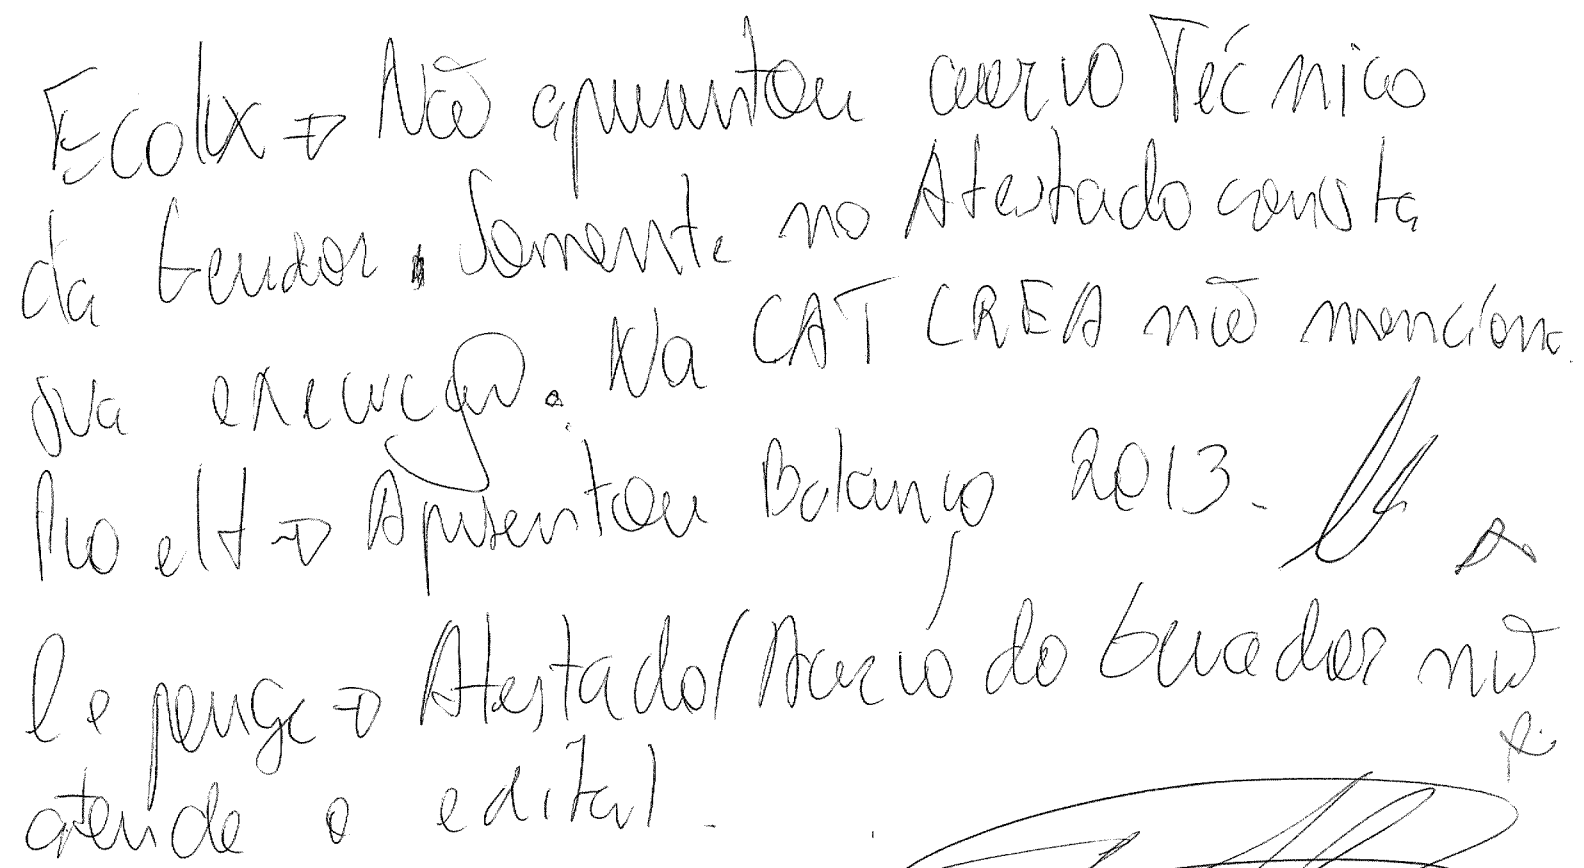 Ecolix → Não apresentou acervo Técnico
da . Somente no Atestado consta
sua execução. Na CAT CREA não menciona
Pro elt → Apresentou Balanço 2013.
→ Atestado/Acervo do não
atende o edital.